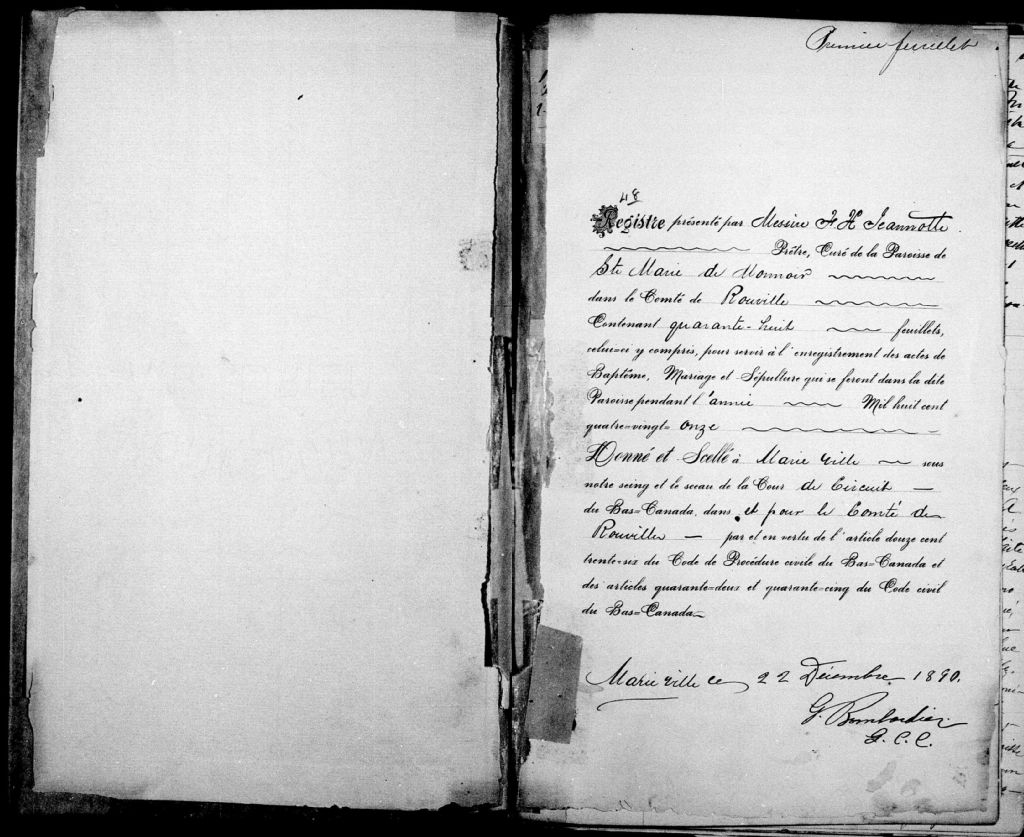 Premier feuillet
48
Registre présenté par Messire F. H. Jeannotte
Prêtre, Curé de la Paroisse de
Ste Marie de Monnoir
dans le Comté de Rouville
Contenant quarante-huit feuillets,
celui=ci y compris, pour servir à l'enregistrement des actes de
Baptême, Mariage et Sépulture qui se feront dans la dite
Paroisse pendant l'année Mil huit cent
quatre=vingt= onze
Donné et Scellé à Marieville sous
notre seing et le sceau de la Cour de Circuit
du Bas=Canada, dans et pour le Comté de
Rouville — par et en vertu de l'article douze cent
trente=six du Code de Procédure civile du Bas=Canada et
des articles quarante=deux et quarante=cinq du Code civil
du Bas=Canada
Marieville ce 22 Décembre 1890.
G. Bombardier
G. C. C.